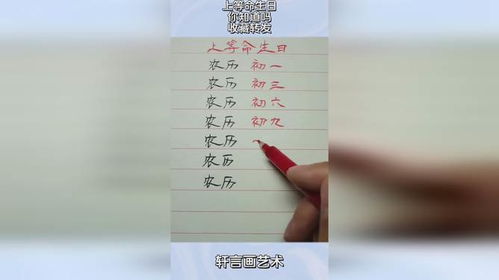 上等命生日
你知道吗
收藏转发
上等命生日
农历 初一
农历 初三
农历 初六
农历 初九
农历
农历
农历
轩言画艺术